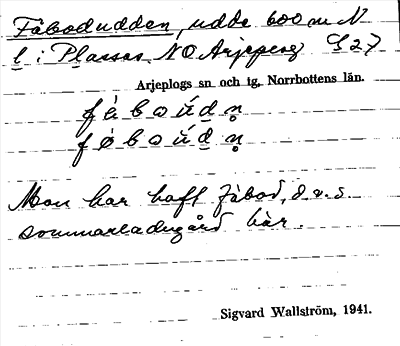 Fäbodudden, udde 600 m N
l i Plassas NO Arjeplog S 27
Arjeplogs sn och tg, Norrbottens län.
fäboúdn̥
føboúdn̥
Man har haft fäbod, d.v.s.
sommarladugård här.
Sigvard Wallström, 1941.